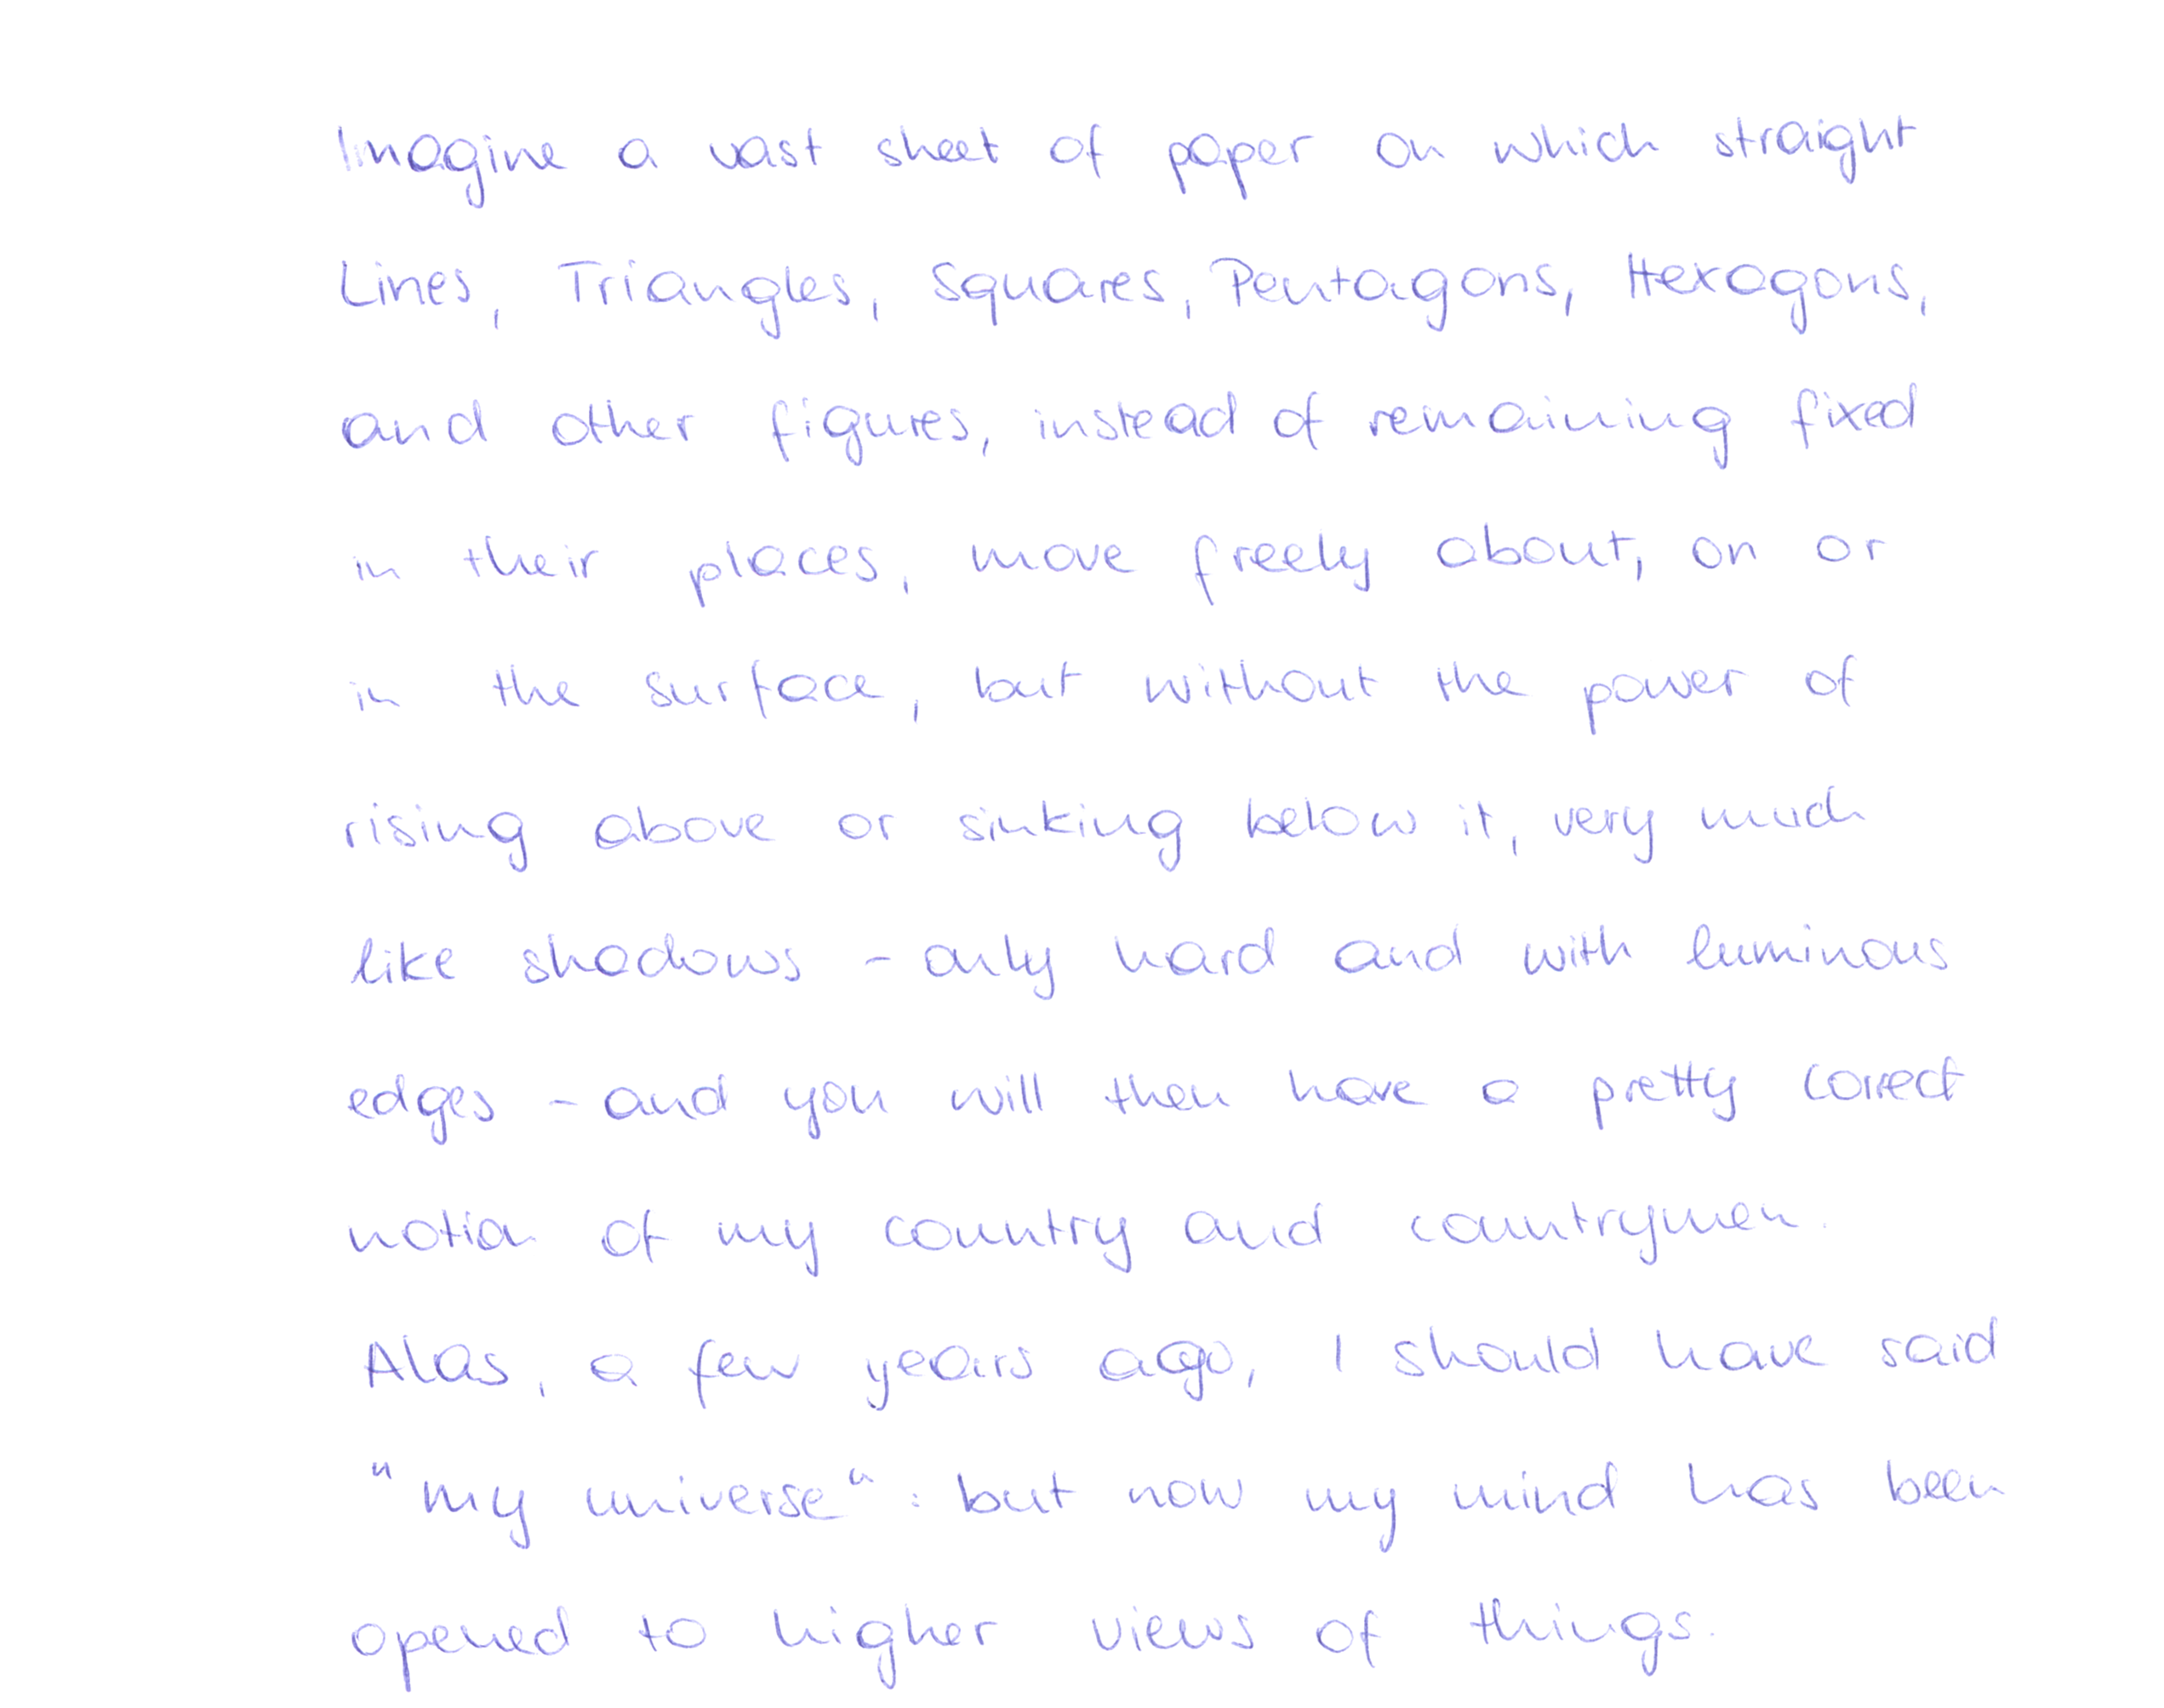 Imagine a vast sheet of paper on which straight
Lines, Triangles, Squares, Pentagons, Hexagons,
and other figures, instead of remaining fixed
in their places, move freely about, on or
in the surface, but without the power of
rising above or sinking below it, very much
like shadows - only hard and with luminous
edges - and you will then have a pretty correct
notion of my country and countrymen.
Alas, a few years ago, I should have said
"my universe": but now my mind has been
opened to higher views of things.